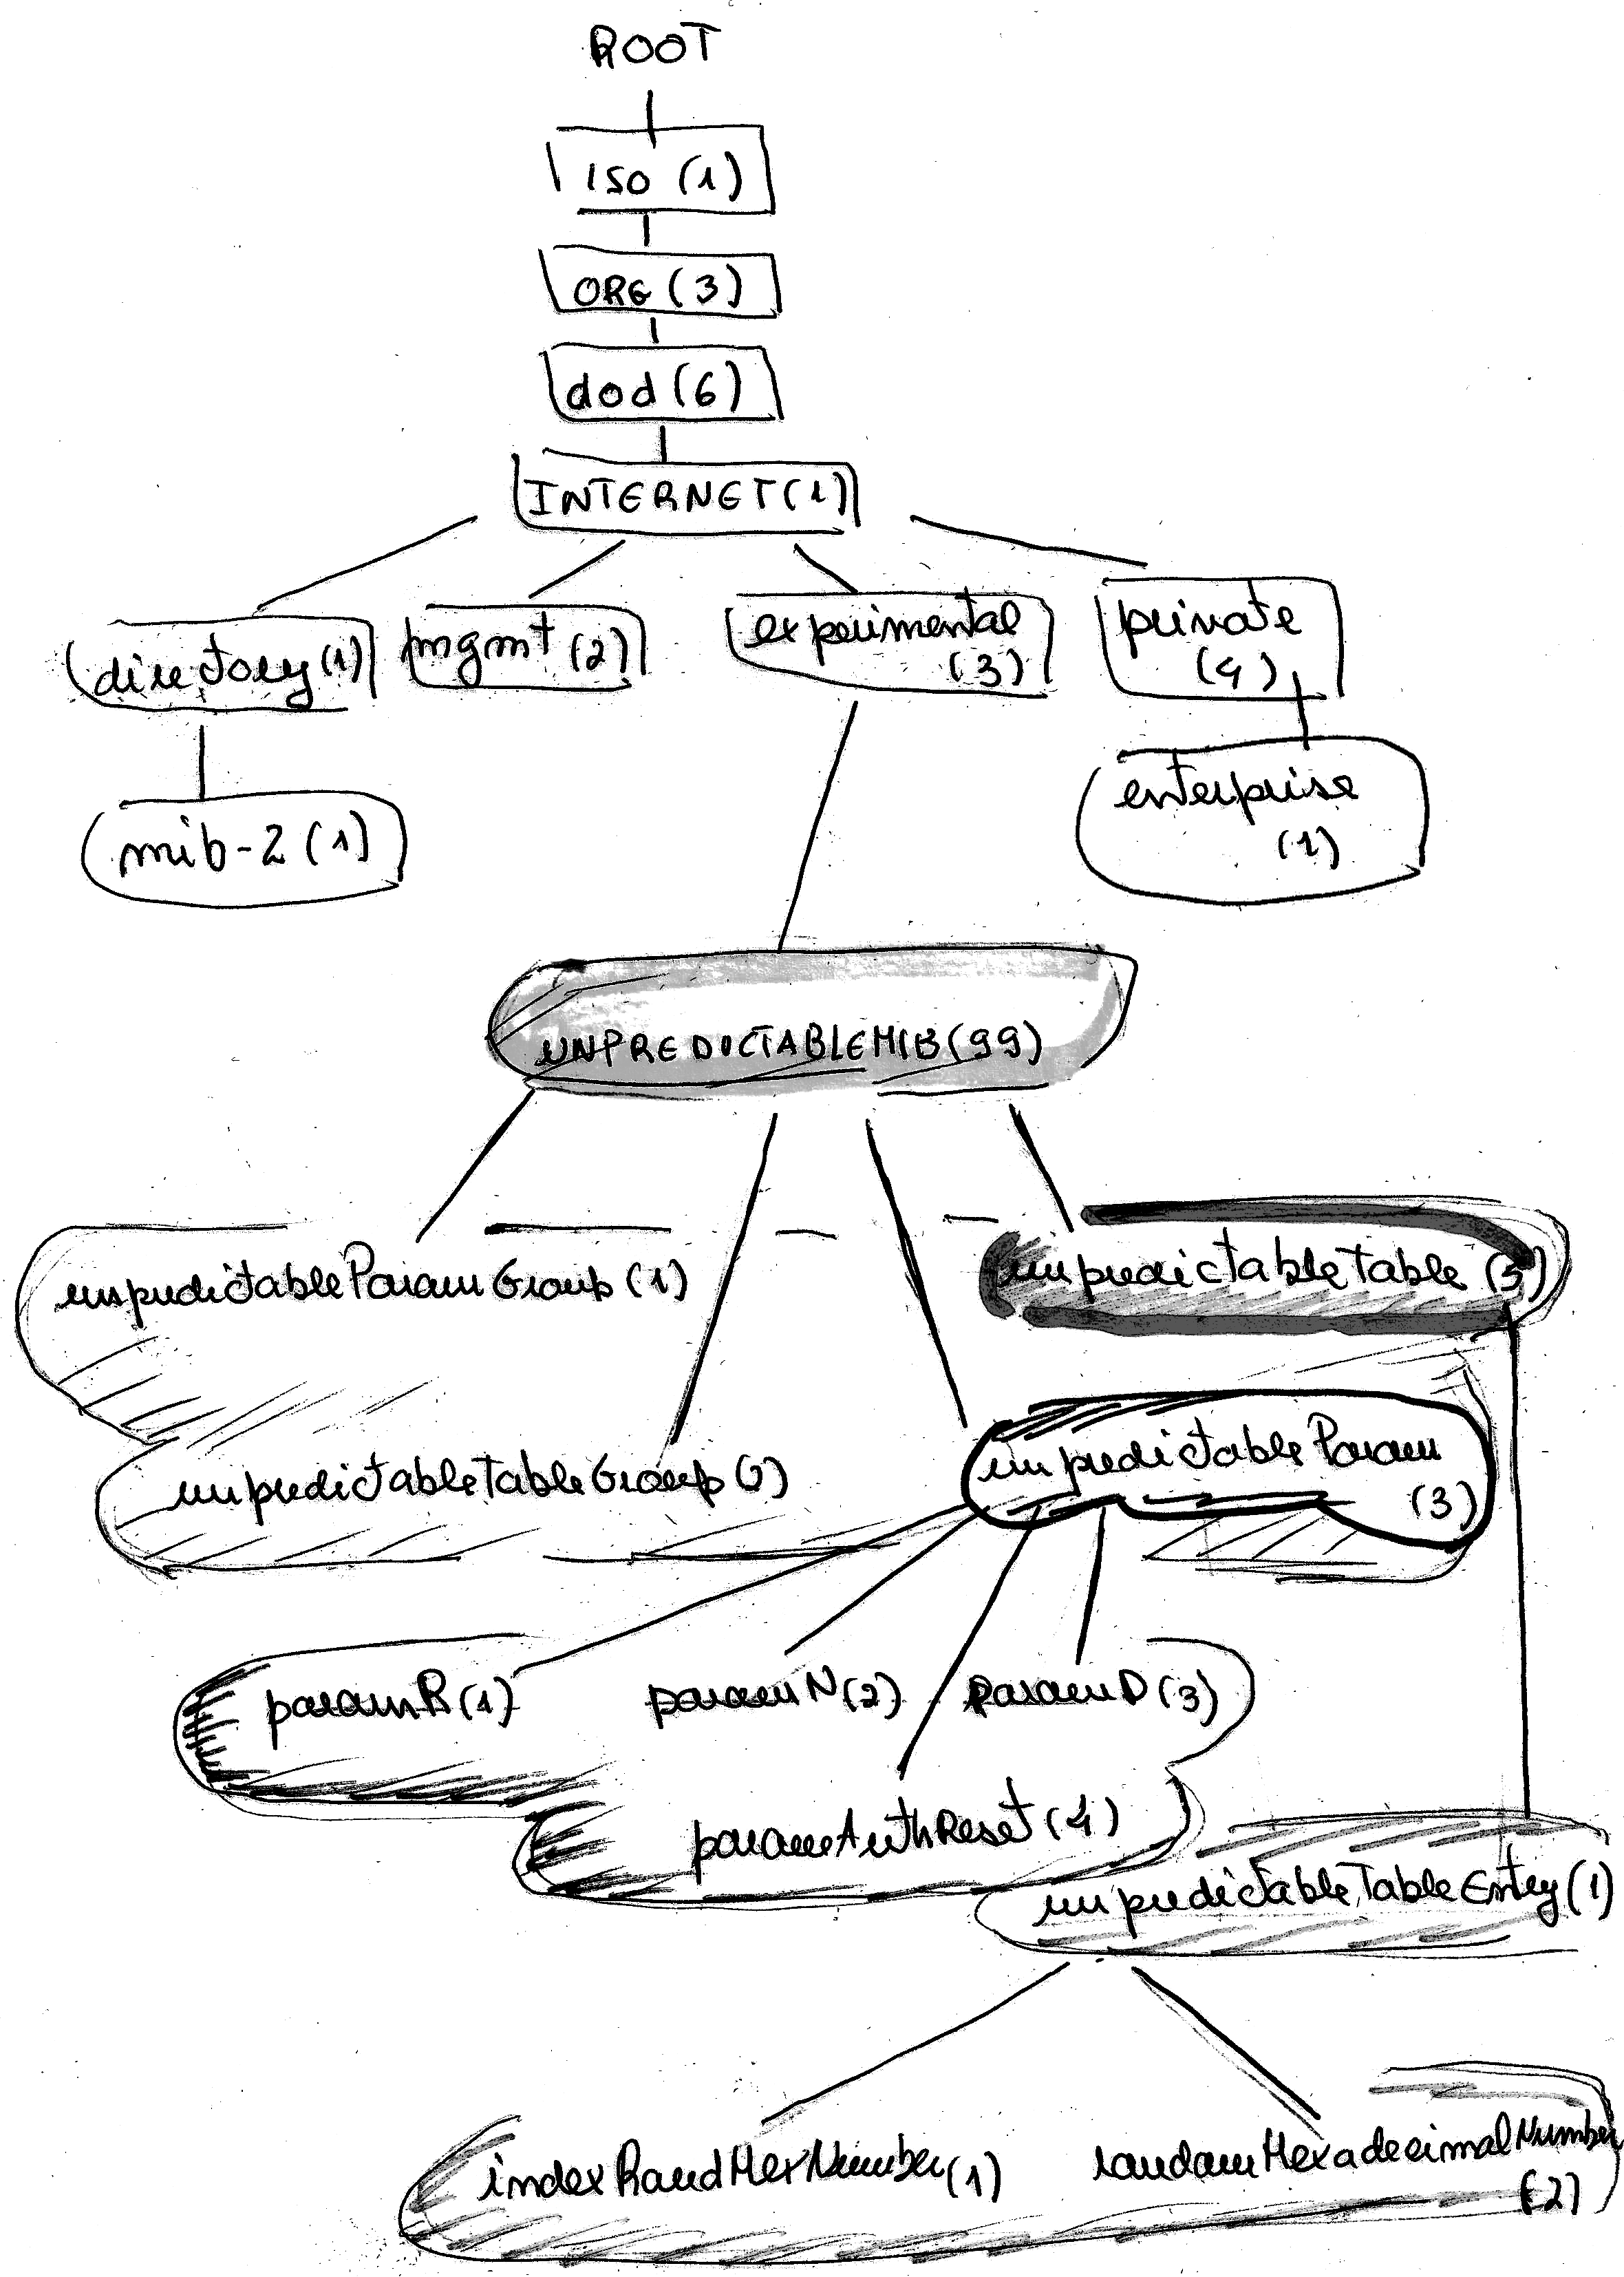 ROOT
ISO (1)
ORG (3)
dod (6)
INTERNET (1)
directory (1)
mgmt (2)
experimental
(3)
private
(4)
mib-2 (1)
enterprise
(1)
UNPREDICTABLEMIB (99)
unpredictableParamGroup (1)
unpredictableTable
unpredictableTableGroup
unpredictableParam
(3)
paramR (1)
paramN (2)
paramD (3)
paramAuthReset (4)
unpredictableTableEntry (1)
indexRandHexNumber (1)
randomHexadecimalNumber
(2)